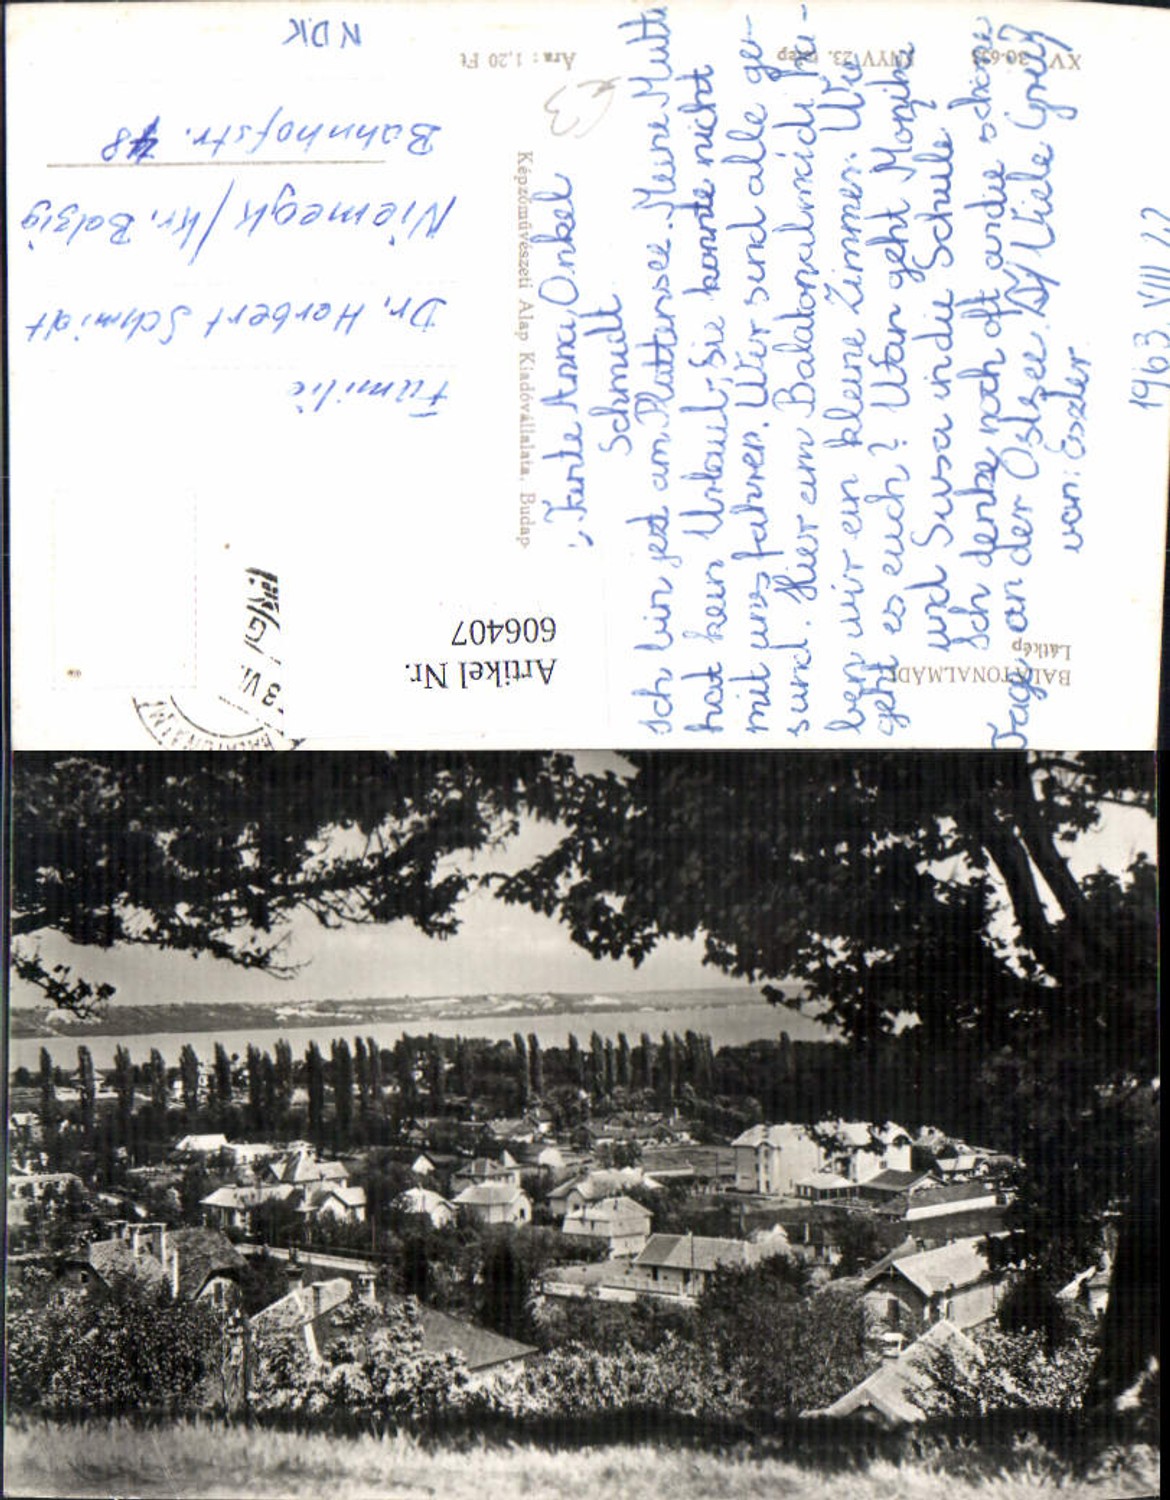 BALATONALMÁDI
Látkép
Tante Anna, Onkel
Schmidt
Ich bin jezt am Plattensee. Meine Mutti
hat kein Urlaub, Sie konnte nicht
mit uns fahren. Wir sind alle ge-
sund. Hier im Balatonalmádi ha-
ben wir ein kleine Zimmer. Wie
geht es euch? Wan geht Monika
und Susa in die Schule
Ich denke noch oft an die schöne
Tage an der Ostsee. Viele Grüß
von: Eszter
1963 VIII 22
Képzőművészeti Alap Kiadóvállalata, Budap-
Ára: 1,20 Ft
XV
Familie
Dr. Herbert Schmidt
Niemegk/Kr. Belzig
Bahnhofstr. 48
NDK
Artikel Nr.
606407